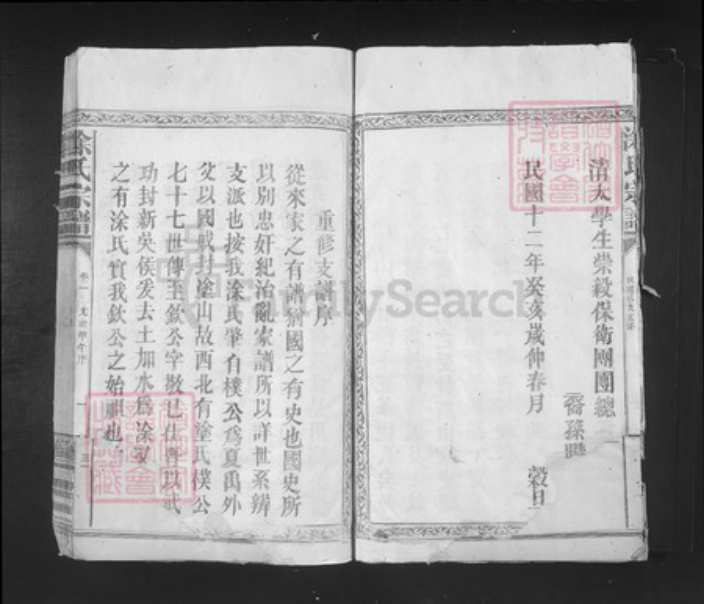 涂氏宗譜
清太學生業穀保衛團團總
裔孫
民國十二年癸亥歲仲春月 穀旦
重修支譜序
從來家之有譜猶國之有史也國史所
以別忠奸紀治亂家譜所以詳世系辨
支派也按我涂氏肇自樸公爲夏禹外
父以國戚封塗山故西北有塗氏樸公
七十七世傳至欽公字敬已仕晋以武
功封新吳侯爰去土加水爲涂家
之有涂氏實我欽公之始祖也
涂氏宗譜
卷一
三
FamilySearch